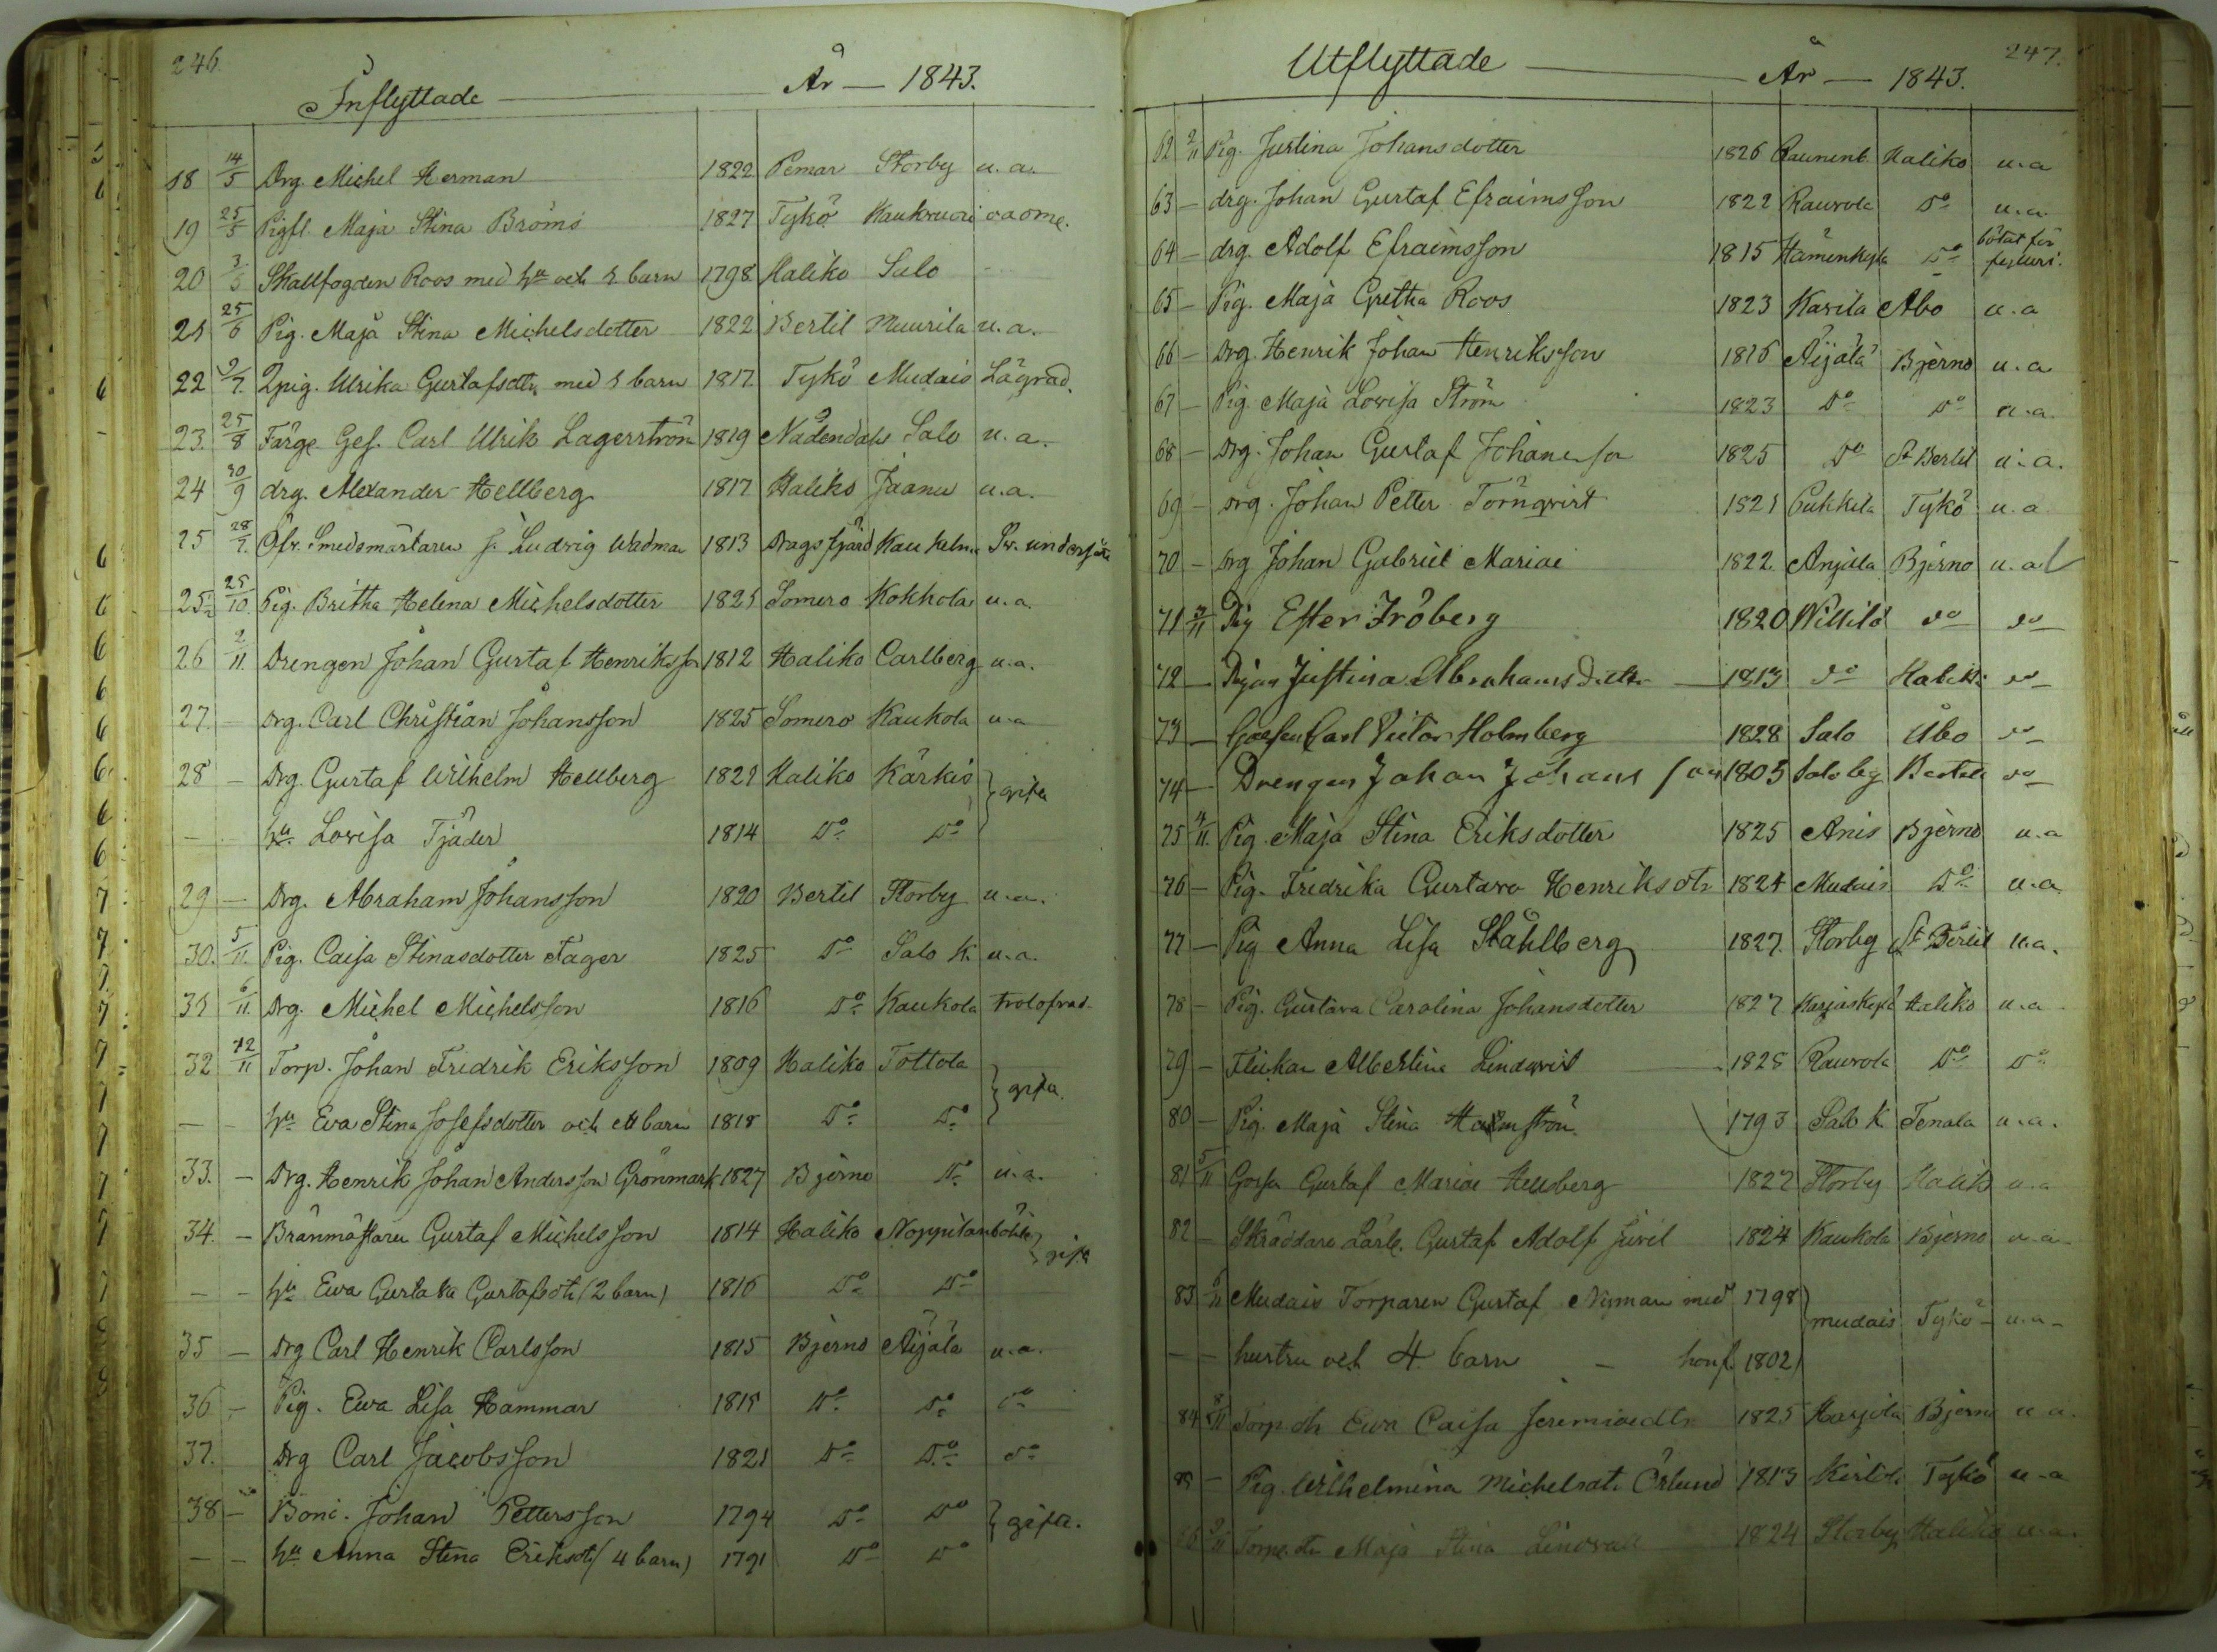 246.
Inflyttade — År — 1843.
18 14/5 Drg. Michel Herman 1822 Pemar Storby u. a.
19 25/5 Pigfl. Maja Stina Broms 1827 Tykö Kaukvuori
20 3/6 Skallfogden Roos med hu och 1 barn 1798 Haliko Salo
21 25/6 Pig. Maja Stina Michelsdotter 1822 Bertil Muurila u. a.
22 9/7. Qpig. Ulrika Gustafsdtr med 1 barn 1817 Tykö Mudais Lägrad.
23. 25/8 Färge. Ges. Carl Ulrik Lagerström 1819 Nådendahl Salo u. a.
24 30/9 drg. Alexander Hellberg 1817 Haliko Jaanu u. a.
25 28/7. Öfv. Smedsmästaren J. Ludvig Wadman 1813 Dragsfjärd Kaukelma
25½ 25/10. Pig. Britha Helena Michelsdotter 1821 Somero Kokkola u. a.
26 2/11. Drengen Johan Gustaf Henriksson 1812 Haliko Carlberg u. a.
27. — Drg. Carl Christian Johansson 1825 Somero Kaukola u. a
28 — Drg. Gustaf Wilhelm Hellberg 1821 Haliko Kärkis } gifta
— hu Lovisa Tjäder 1814 Do Do
29 — Drg. Abraham Johansson 1820 Bertil Storby u. a.
30. 5/11. Pig. Caisa Stinasdotter Fager 1825 Do Salo K. u. a.
31 6/11. Drg. Michel Michelsson 1816 Do Kaukola trolofvad
32 12/11 Torp. Johan Fridrik Eriksson 1809 Haliko Tottola } gifta.
— hu Eva Stina Josefsdotter och ett barn 1818 Do Do
33. — Drg. Henrik Johan Andersson Grönmark 1827 Bjerno Do u. a.
34. — Bränmästaren Gustaf Michelsson 1814 Haliko Noppitanböhle } gifta
— — hu Eva Gustava Gustafsdtr (2 barn) 1816 Do Do
35 — Drg Carl Henrik Carlsson 1815 Bjerno Äijälä u. a.
36 — Pig. Ewa Lisa Hammar 1818 Do Do Do
37. Drg Carl Jacobsson 1821 Do Do Do
38 — Bond. Johan Pettersson 1794 Do Do } gifta.
— — hu Anna Stina Eriksdtr (4 barn) 1791 Do Do
247.
Utflyttade — År — 1843.
62 2/11 Pig. Justina Johansdotter 1826 Haliko u. a
63 — drg. Johan Gustaf Efraimsson 1822 Raurola Do u. a.
64 — drg. Adolf Efraimsson 1815 Hämenkylä Do bötat för
65 — Pig. Maja Gretha Roos 1823 Karila Åbo u. a
66 — Drg. Henrik Johan Henriksson 1816 Äijälä Bjerno u. a
67 — Pig. Maja Lovisa Ström 1823 Do Do u. a.
68 — Drg. Johan Gustaf Johansson 1825 Do St Bertil u. a.
69 — Drg. Johan Petter Törnqvist 1821 Pukkila Tykö u. a
70 — Drg Johan Gabriel Mariae 1822. Anjala Bjerno u. a
71 3/11 Pig Ester Fröberg 1820 Willilä do do
72 — Pigan Justina Abrahamsdotter — 1813 do Haliko do
73 — Gossen Carl Victor Holmberg 1828 Salo Åbo do
74 — Drengen Johan Johansson 1805 Saloby Bertil do
75 4/11. Pig. Maja Stina Eriksdotter 1825 Anis Bjerno u. a
76 — Pig. Fredrika Gustava Henriksdtr 1824 Mudais Do u. a
77 — Pig Anna Lisa Ståhlberg 1827. Storby St Bertil u. a.
78 — Pig. Gustava Carolina Johansdotter 1827 Karjaskylä Haliko u. a
79 — Flickan Albertina Lindqvist 1828 Raurola Do Do
80 — Pig. Maja Stina Holmström 1793 Salo K Tenala u. a.
81 5/11 Gossen Gustaf Mariae Hellberg 1827 Storby Haliko u. a
82 — Skräddare Lärl. Gustaf Adolf Juvel 1824 Kaukola Bjerno u. a
83 6/11 Mudais Torparen Gustaf Nyman med 1798 } mudais Tykö u. a
— — hustru och 4 barn — hon f. 1802
84 8/11 Torp. dtr Ewa Caisa Jeremiaedtr 1825 Karjola Bjerno u. a.
85 — Pig. Wilhelmina Michelsdtr Örlund 1813 Tykö u. a
86 9/11 Torpe. dtr Maja Stina Lindvall 1824 Storby Haliko u. a.